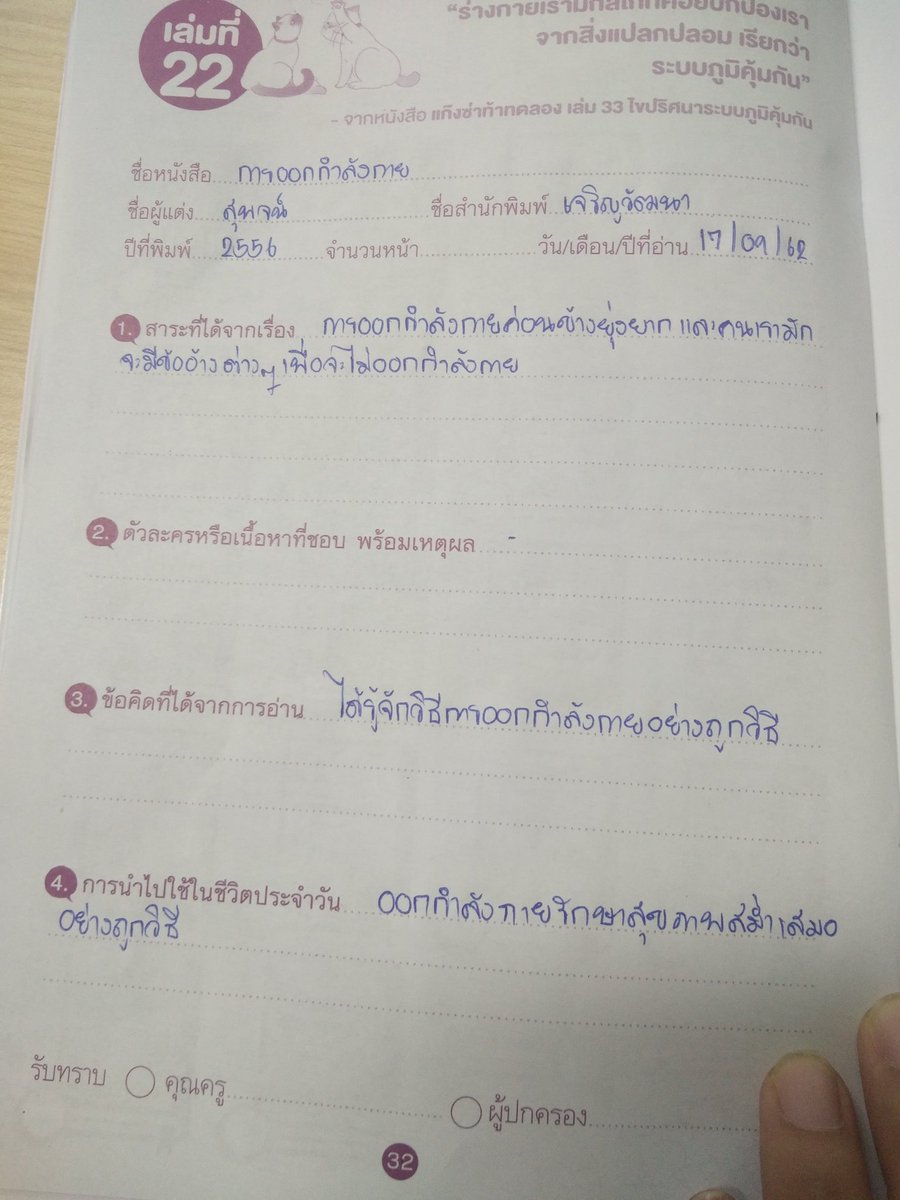 เล่มที่
22
"ร่างกายเรามีกลไกที่คอยปกป้องเรา
จากสิ่งแปลกปลอม เรียกว่า
ระบบภูมิคุ้มกัน"
- จากหนังสือ แก๊งซ่าท้าทดลอง เล่ม 33 ไขปริศนาระบบภูมิคุ้มกัน
ชื่อหนังสือ การออกกำลังกาย
ชื่อผู้แต่ง สุพจน์ ชื่อสำนักพิมพ์ เจริญวัฒนา
ปีที่พิมพ์ 2556 จำนวนหน้า วัน/เดือน/ปีที่อ่าน 17/09/62
1. สาระที่ได้จากเรื่อง การออกกำลังกายค่อนข้างยุ่งยาก และคนเรามัก
จะมีข้ออ้างต่างๆ เพื่อจะไม่ออกกำลังกาย
2. ตัวละครหรือเนื้อหาที่ชอบ พร้อมเหตุผล -
3. ข้อคิดที่ได้จากการอ่าน ได้รู้จักวิธีการออกกำลังกายอย่างถูกวิธี
4. การนำไปใช้ในชีวิตประจำวัน ออกกำลังกายรักษาสุขภาพสม่ำเสมอ
อย่างถูกวิธี
รับทราบ คุณครู ผู้ปกครอง
32